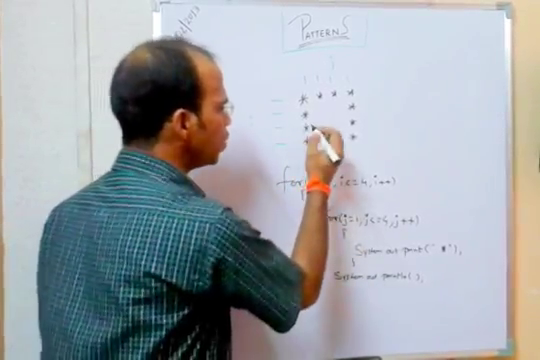 PATTERNS
* * * *
* *
* *
* *
for( , i<=4, i++)
for(j=1, j<=4, j++)
{
System out print(" * "),
}
System out println( ),